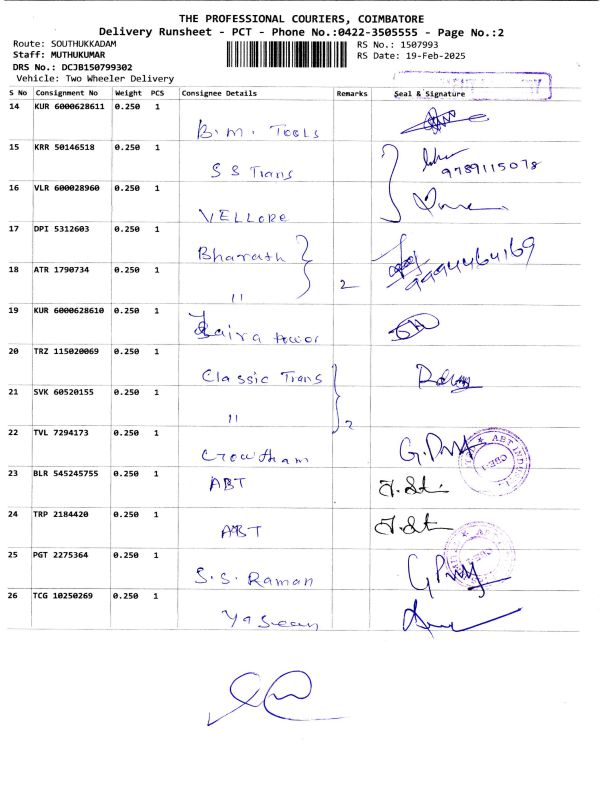 THE PROFESSIONAL COURIERS, COIMBATORE
Delivery Runsheet - PCT - Phone No.:0422-3505555 - Page No.:2
Route: SOUTHUKKADAM RS No.: 1507993
Staff: MUTHUKUMAR RS Date: 19-Feb-2025
DRS No.: DCJB150799302
Vehicle: Two Wheeler Delivery
S No Consignment No Weight PCS Consignee Details Remarks Seal & Signature
14 KUR 6000628611 0.250 1
B.M. Tools
15 KRR 50146518 0.250 1
S S Trans 9789115078
16 VLR 600028960 0.250 1
VELLORE
17 DPI 5312603 0.250 1
Bharath 9994464169
18 ATR 1790734 0.250 1
11 2
19 KUR 6000628610 0.250 1
20 TRZ 115020069 0.250 1
Classic Trans
21 SVK 60520155 0.250 1
11 2
22 TVL 7294173 0.250 1
Crowtham
23 BLR 545245755 0.250 1
ABT
24 TRP 2184420 0.250 1
ABT
25 PGT 2275364 0.250 1
S.S. Raman
26 TCG 10250269 0.250 1